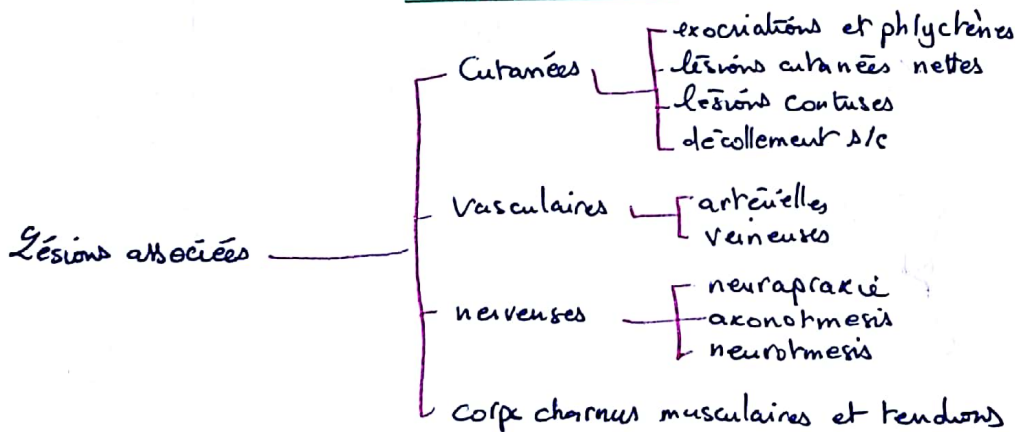 Lésions associées
Cutanées
exocriations et phlyctènes
lésions cutanées nettes
lésions contuses
décollement s/c
vasculaires
artérielles
veineuses
nerveuses
neurapraxie
axonotmesis
neurotmesis
corps charnus musculaires et tendons